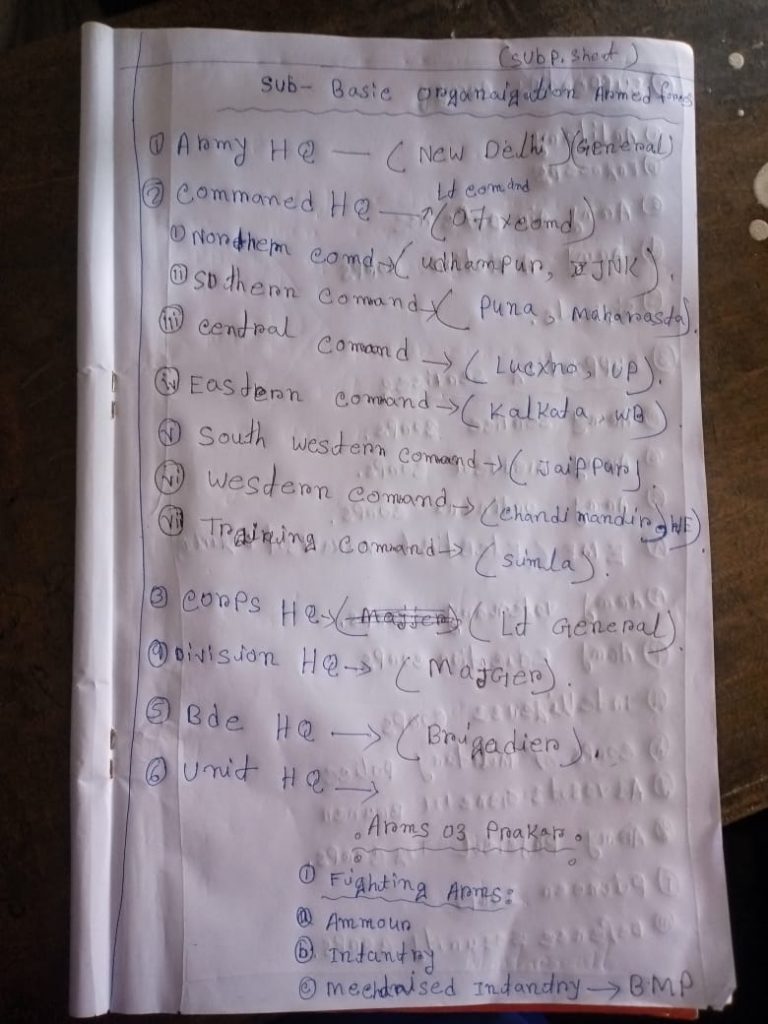 (Sub P. Sheet)
Sub- Basic organaigation Armed forces
① Army HQ — (New Delhi) (General)
② Commaned HQ → (07 x comd) Ld comand
① Northern comd → (udhampur, JNK).
② Sothern comand → (Puna, Maharasda).
③ central comand → (Lucxno, UP).
④ Eastern command → (Kalkata, WB)
⑤ South western comand → (Jaippur).
⑥ western comand → (chandimandir, WE).
⑦ Training command → (Simla).
③ corps HQ → (Ld General).
④ Division HQ → (MajGien).
⑤ Bde HQ → (Brigadier).
⑥ Unit HQ →
Arms 03 Prakar
① Fighting Arms:
ⓐ Ammour
ⓑ Intantry
ⓒ mechnaised Indandry → BMP